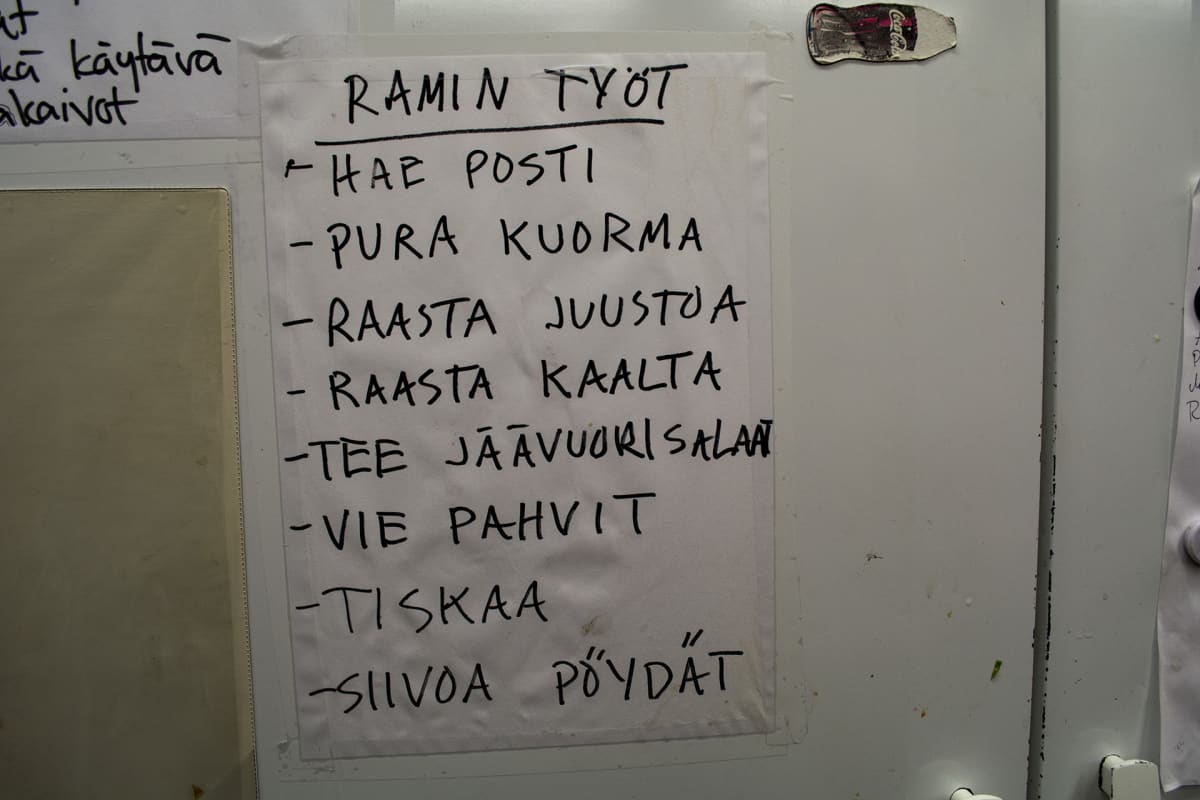 kä käytävä
akaivot
RAMIN TYÖT
- HAE POSTI
- PURA KUORMA
- RAASTA JUUSTOA
- RAASTA KAALTA
- TEE JÄÄVUORISALAAT
- VIE PAHVIT
- TISKAA
- SIIVOA PÖYDÄT
Coca-Cola